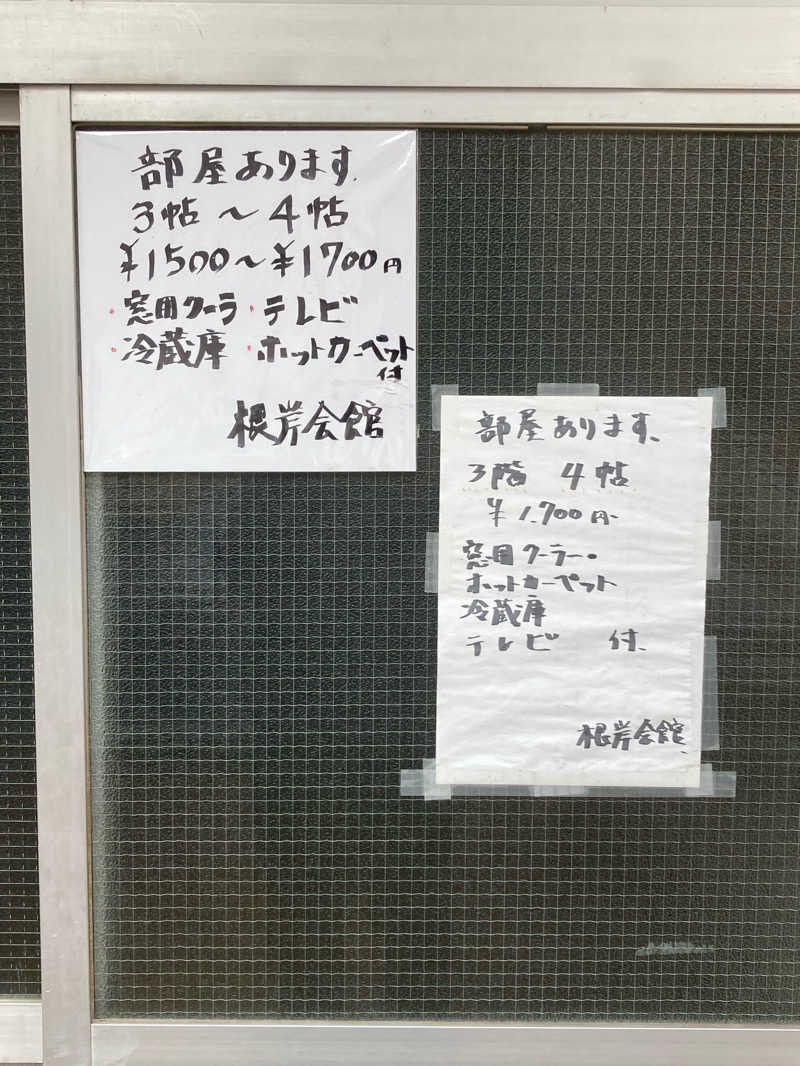 部屋あります.
3帖〜4帖
¥1500〜¥1700円
・窓用クーラ・テレビ
・冷蔵庫・ホットカーペット
付
根岸会館
部屋あります、
3階 4帖
¥1,700円-
窓用クーラー・
ホットカーペット
冷蔵庫
テレビ 付、
根岸会館、